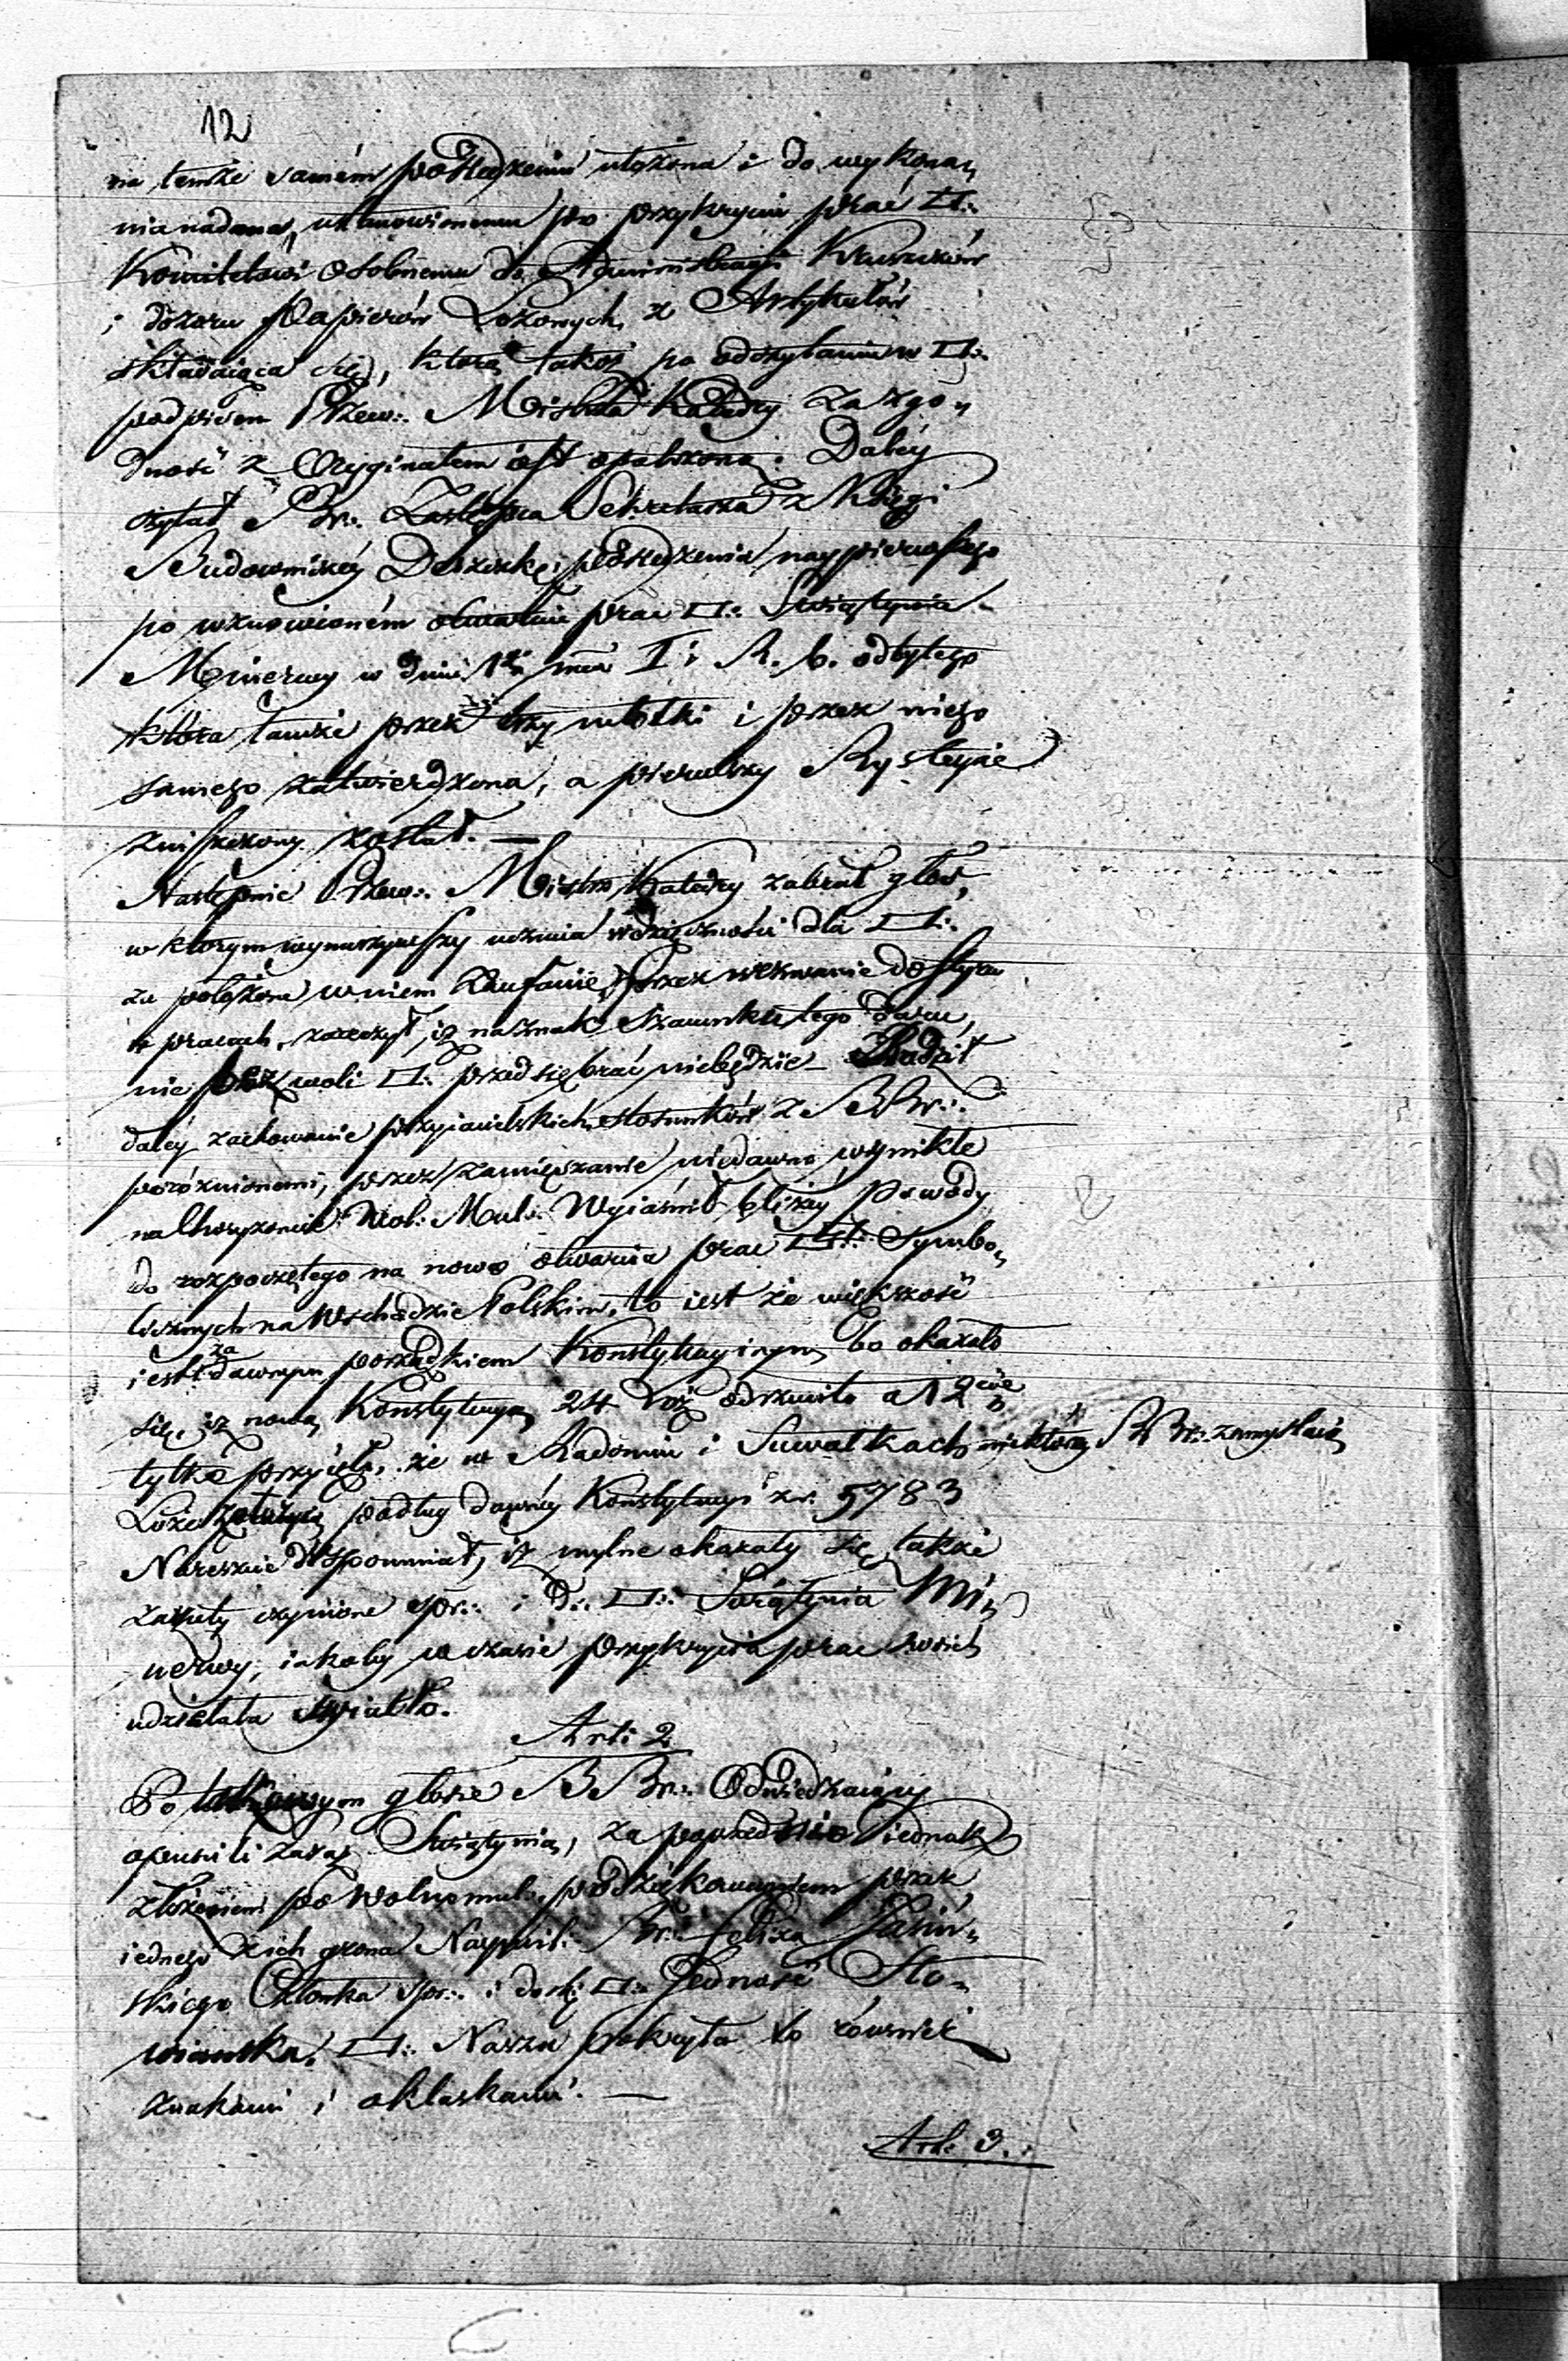 12
na temże samém posiedzeniu ułożona i do wykona„
nia nadana, ustanowionemu po przykryciu prac □∴
Komitetowi osobnemu do Administracyi Kruszców
i dozoru Papierów Lożowych, z Artykułów
składaiąca się, która takoż po odczytaniu w □∴
podpisem Przew∴ Mistrza Katedry za zgo„
dność z Oryginałem iest opatrzona. Daléy
czytał Br∴ Zastępca Sekretarza z Księgi
Budowniczéy Deszczkę posiedzenia naypierwszego
po wznowioném otwarciu prac □∴ Swiątynia
Minerwy w dniu 12 mca I i R. b. odbytego
która tamże przez trzy młotki i przez niego
samego zatwierdzona, a pierwszy Rys teyże
zniszczony został. —
Następnie Przew∴ Mistrz Katedry zabrał głos,
w którym wynurzywszy uczucia wdzięczności dla □∴
za położone w niem Zaufanie, przez wezwanie do steru
w pracach, zaręczył, iż na znak szacunku tego daru,
nic bez woli □∴ przedsiębrać nie będzie – Radził
daléy zachowanie przyiacielskich stosunków z BBr∴
poróżnionemi, przez zamięszanie niedawno wynikłe
na Horyzoncie Wol∴ Mul∴ Wyiaśnił bliżéy powody
do rozpoczętego na nowo otwarcia prac □□∴ Symbo„
licznych na Wschodzie Polskim, to iest że większość
iest za dawnym porządkiem Konstytucyinym, bo okazało
się, iż nową Konstytucyą 24 Lóż odrzuciło a 12cie
tylko przyięło, że w Radomiu i Suwałkach niektórzy BBr∴ zamyślaią
Loże założyć podług dawnéy Konstytucyi z r. 5783
Nareszcie Wspomniał, iż mylne okazały się także
zarzuty czynione spr∴ i d∴ □∴ Swiątynia Mi„
nerwy, iakoby w czasie przykrycia prac swoich
udzielała światło.
Art: 2
Po takowym głosie BBr∴ Odwiedzaiący
opuścili zaraz Swiątynią, za poprzedniem iednak
złożeniem po Wolnomul∴ podziękowaniem przez
iednego z ich grona Naymil∴ Br∴ Felixa Jasiń„
skiego Członka spr∴ i dosk∴ □∴ Jedność Sło„
wiańska, □∴ Nasza pokryła to również
znakami i oklaskami. —
Art: 3.